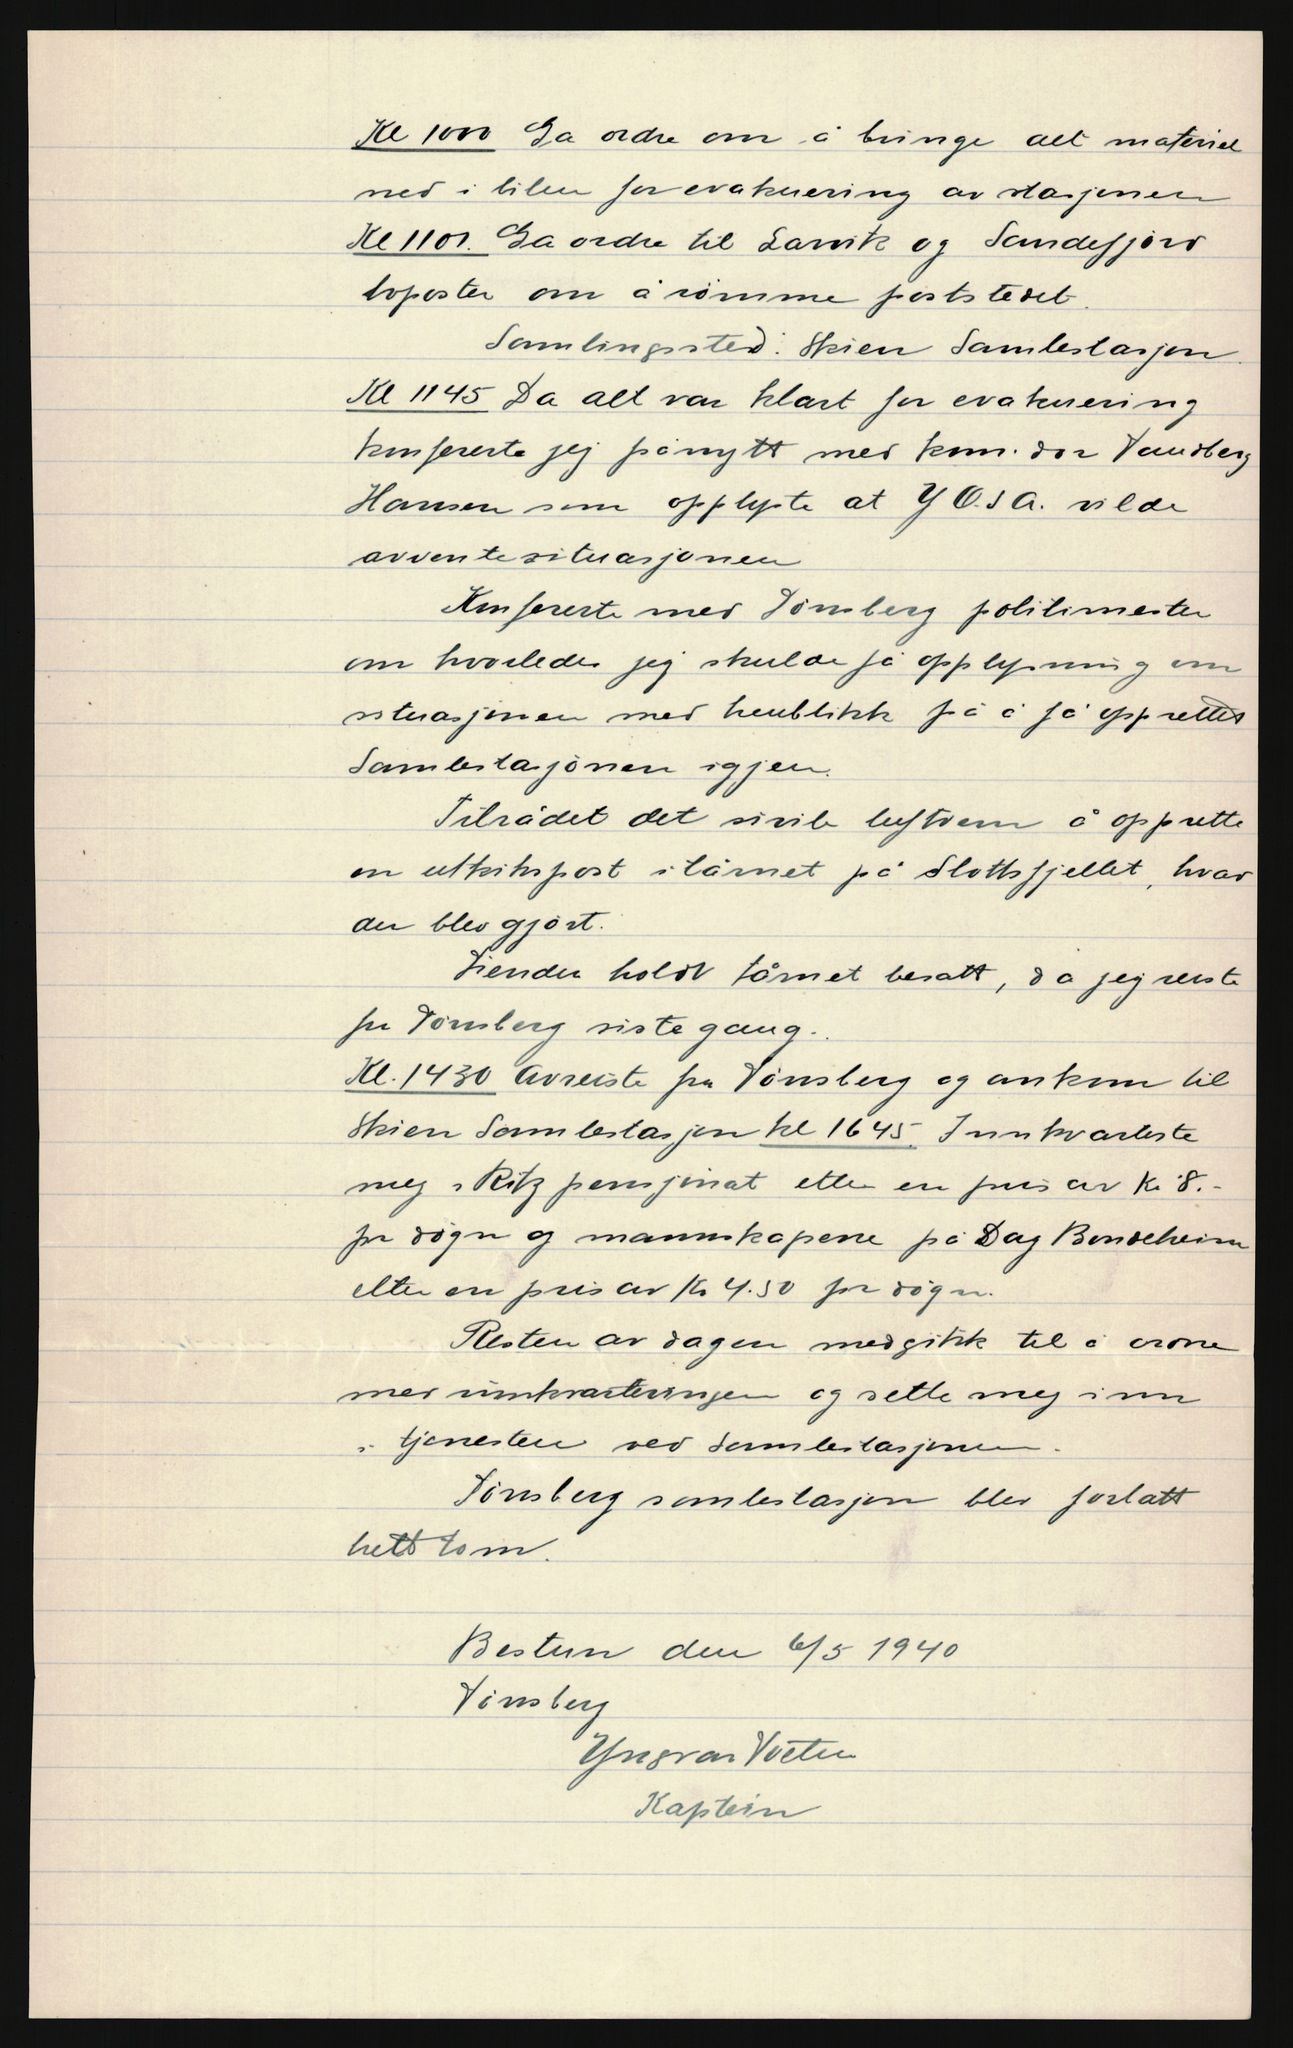 Kl 1000 Ga ordre om å bringe alt materiel
ned i bilen for evakuering av stasjonen
Kl 1101. Ga ordre til Larvik og Sandefjord
lvposter om å rømme poststedet.
Samlingssted: Skien Samlestasjon.
Kl 1145 Da alt var klart for evakuering
konfererte jeg pånytt med kom.dør
Hansen som opplyste at Y Ø.S A. vilde
avvente situasjonen
Konfererte med Tønsberg politimester
om hvorledes jeg skulde få opplysning om
situasjonen med henblikk på å få opprettet
Samlestasjonen igjen.
Tilrådet det sivile luftvern å opprette
en utkikspost i tårnet på Slottsfjellet, hvad
der blev gjort.
Fienden holdt tårnet besatt, da jeg reiste
fra Tønsberg siste gang.
Kl. 1430 Avreiste fra Tønsberg og ankom til
Skien Samlestasjon kl 1645. Innkvarterte
meg i Ritz pensjonat etter en pris av Kr 8.-
pr døgn og mannskapene på Dag Bondeheim
etter en pris av Kr 4.50 pr døgn.
Resten av dagen medgikk til å ordne
med innkvarteringen og sette meg inn
i tjenesten ved Samlestasjonen.
Tønsberg samlestasjon blev forlatt
helt tom.
Bestun den 6/5 1940
Tønsberg
Yngvar
Kaptein